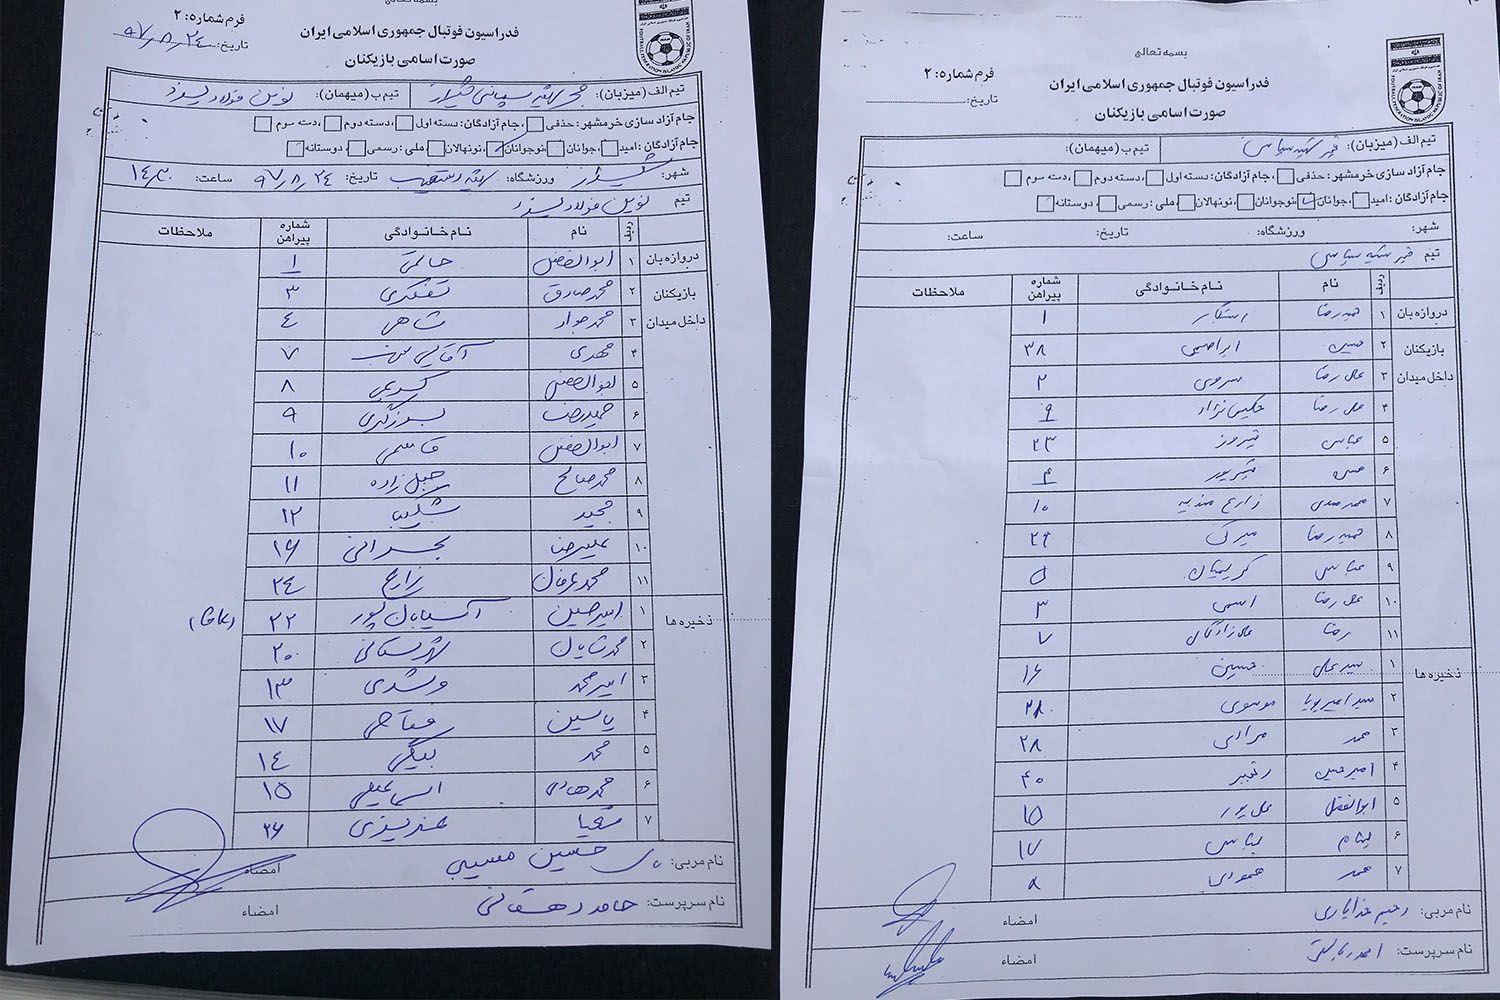 بسمه تعالی
فدراسیون فوتبال جمهوری اسلامی ایران
صورت اسامی بازیکنان
فرم شماره: ۲
تاریخ: ۹۷٫۸٫۲۴
تیم الف (میزبان): فجر شهید سپاسی شیراز تیم ب (میهمان): نوین فولاد یزد
جام آزاد سازی خرمشهر: حذفی ، جام آزادگان: دسته اول ، دسته دوم ، دسته سوم
جام آزادگان: امید ، جوانان ، نوجوانان ، نونهالان ملی: رسمی ، دوستانه
شهر: شیراز ورزشگاه: شهید دستغیب تاریخ: ۹۷٫۸٫۲۴ ساعت: ۱۴٫۳۰
تیم نوین فولاد یزد
ردیف نام نام خانوادگی شماره پیراهن ملاحظات
دروازه بان ۱ ابوالفضل حالتی ۱
بازیکنان ۲ محمدصادق تفکری ۳
داخل میدان ۳ محمدجواد شاهی ۴
۴ مهدی ۷
۵ ابوالفضل کریمی ۸
۶ حمیدرضا برزگری ۹
۷ ابوالفضل قاسمی ۱۰
۸ محمدصالح جبل زاده ۱۱
۹ مجید شکیب ۱۲
۱۰ علیرضا بحرانی ۱۶
۱۱ محمدعرفان زارع ۲۴
ذخیره ها ۱ امیرحسین آسیابان پور ۲۲
۲ محمدشایان شهرستانی ۲۰
۳ امیرمحمد مرشدی ۱۳
۴ یاسین فتاحی ۱۷
۵ محمد بیگی ۱۴
۶ محمدهادی اسماعیلی ۱۵
۷ ۲۶
نام مربی: حسین مسیبی امضاء
نام سرپرست: حامد دهقانی امضاء
بسمه تعالی
فدراسیون فوتبال جمهوری اسلامی ایران
صورت اسامی بازیکنان
فرم شماره: ۲
تاریخ:
تیم الف (میزبان): فجر شهید سپاسی تیم ب (میهمان):
جام آزاد سازی خرمشهر: حذفی ، جام آزادگان: دسته اول ، دسته دوم ، دسته سوم
جام آزادگان: امید ، جوانان ، نوجوانان ، نونهالان ملی: رسمی ، دوستانه
شهر: ورزشگاه: تاریخ: ساعت:
تیم فجر شهید سپاسی
ردیف نام نام خانوادگی شماره پیراهن ملاحظات
دروازه بان ۱ حمیدرضا رستگار ۱
بازیکنان ۲ حسین ابراهیمی ۳۸
داخل میدان ۳ علی رضا سروی ۲
۴ علی رضا حکیمی نژاد ۹
۵ عباس فیروز ۲۳
۶ ۴
۷ محمدمهدی زارع ۱۰
۸ حمیدرضا میرک ۲۹
۹ عباس کریمیان ۵
۱۰ علی رضا ۳
۱۱ رضا ۷
ذخیره ها ۱ سیدعلی حسینی ۱۶
۲ سید امیرپویا موسوی ۲۸۰
۳ محمد مرادی ۲۸
۴ امیرحسین رنجبر ۴۰
۵ ابوالفضل علی پور ۱۵
۶ ۱۷
۷ محمد محمودی ۸
نام مربی: رحیم خدایاری امضاء
نام سرپرست: امضاء